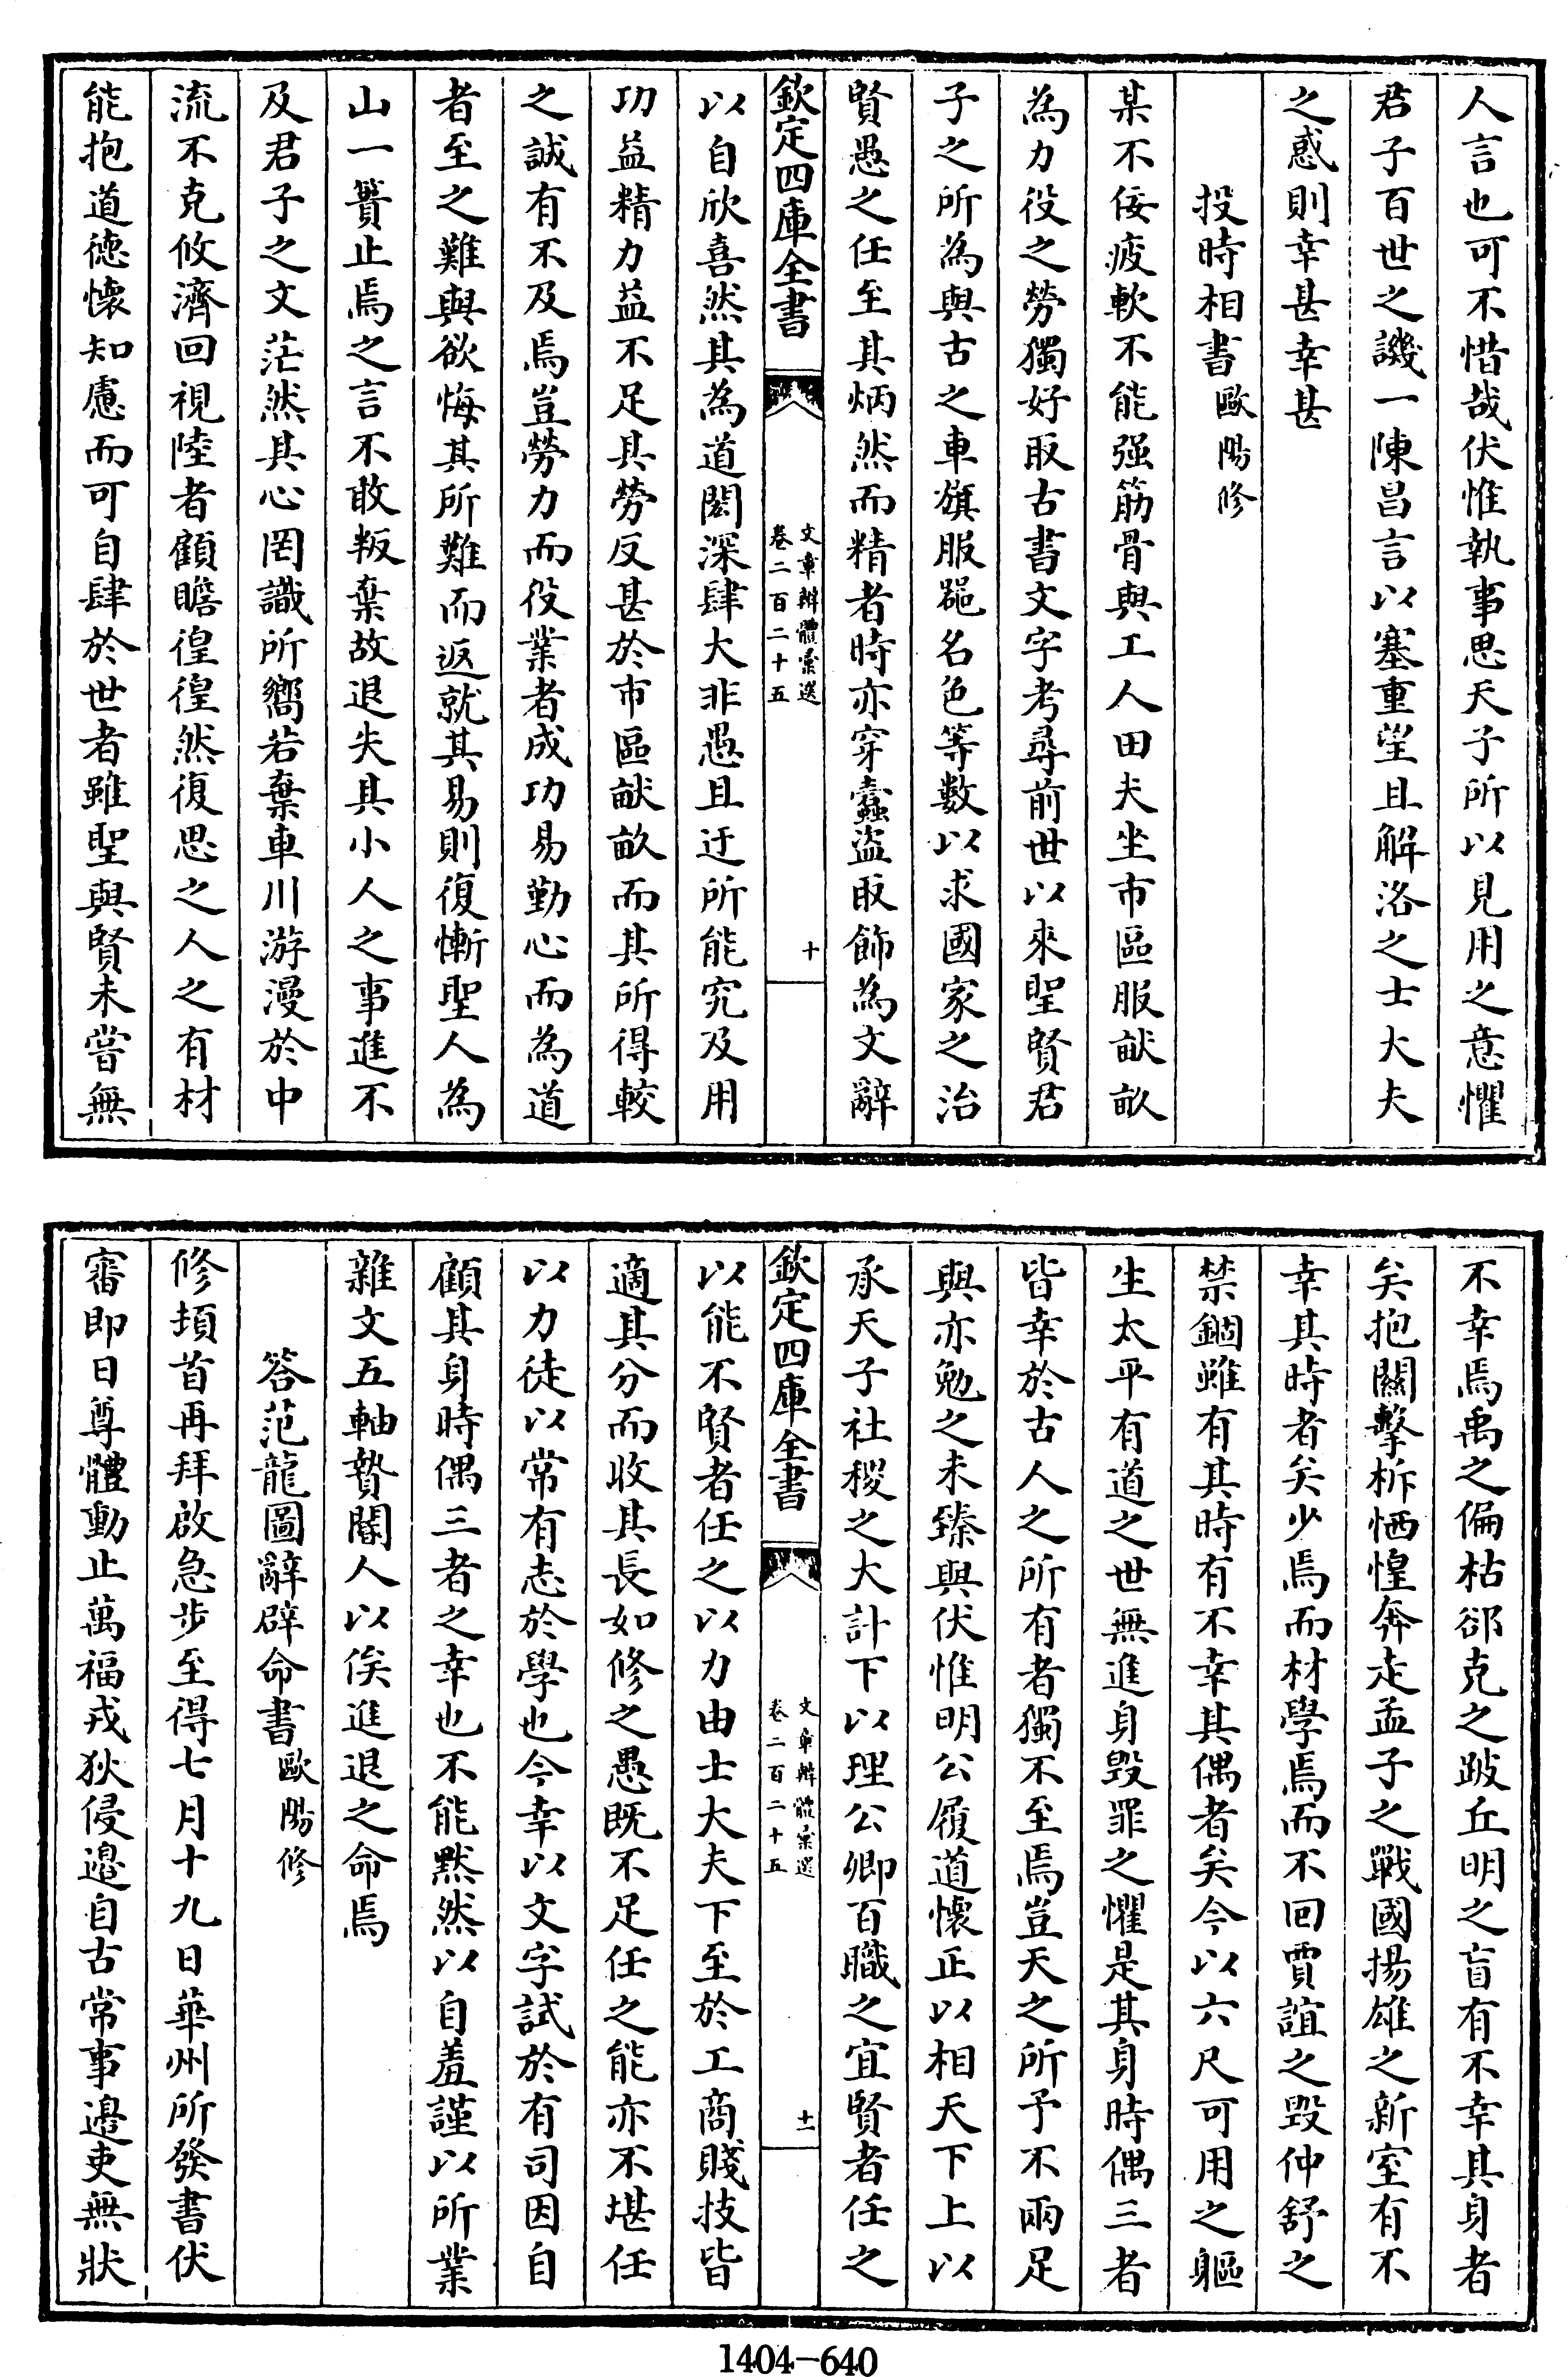 人言也可不惜哉伏惟執事思天子所以見用之意懼
君子百世之譏一陳昌言以塞重望且解洛之士大夫
之惑則幸甚幸甚
投時相書歐陽修
某不佞疲軟不能强筋骨與工人田夫坐市區服畎畝
為力役之勞獨好取古書文字考尋前世以來聖賢君
子之所為與古之車旗服噐名色等數以求國家之治
賢愚之任至其炳然而精者時亦穿蠧盜取飾為文辭
欽定四庫全書
文章辨體彚選
卷二百二十五
十
以自欣喜然其為道閎深肆大非愚且迂所能究及用
功益精力益不足其勞反甚於市區畎畝而其所得較
之誠有不及焉豈勞力而役業者成功易勤心而為道
者至之難與欲悔其所難而返就其易則復慚聖人為
山一簣止焉之言不敢叛棄故退失其小人之事進不
及君子之文茫然其心罔識所嚮若棄車川游漫於中
流不克攸濟回視陸者顧瞻徨徨然復思之人之有材
能抱道德懷知慮而可自肆於世者雖聖與賢未嘗無
不幸焉禹之偏枯郤克之跛丘明之盲有不幸其身者
矣抱關擊柝恓惶奔走孟子之戰國揚雄之新室有不
幸其時者矣少焉而材學焉而不回賈誼之毀仲舒之
禁錮雖有其時有不幸其偶者矣今以六尺可用之軀
生太平有道之世無進身毀罪之懼是其身時偶三者
皆幸於古人之所有者獨不至焉豈天之所予不兩足
與亦勉之未臻與伏惟明公履道懷正以相天下上以
承天子社稷之大計下以理公卿百職之宜賢者任之
欽定四庫全書
文章辨體彚選
卷二百二十五
十一
以能不賢者任之以力由士大夫下至於工商賤技皆
適其分而收其長如修之愚既不足任之能亦不堪任
以力徒以常有志於學也今幸以文字試於有司因自
顧其身時偶三者之幸也不能黙然以自羞謹以所業
雜文五軸贄閽人以俟進退之命焉
答范龍圖辭辟命書歐陽修
修頓首再拜啟急步至得七月十九日華州所發書伏
審即日尊體動止萬福戎狄侵邊自古常事邊吏無狀
1404-640